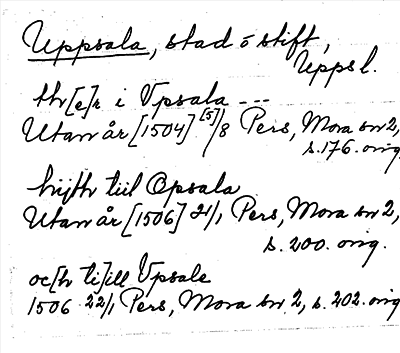 Uppsala, stad o stift,
Uppsl.
thr[e]r i Vpsala ---
Utan år [1504] [5]/8 Pers, Mora sn 2,
s. 176. orig.
hijth till Opsala
Utan år [1506] 21/1 Pers, Mora sn 2,
s. 200. orig.
oc[h ti]ill Vpsale
1506 22/1 Pers, Mora sn 2, s. 202. orig